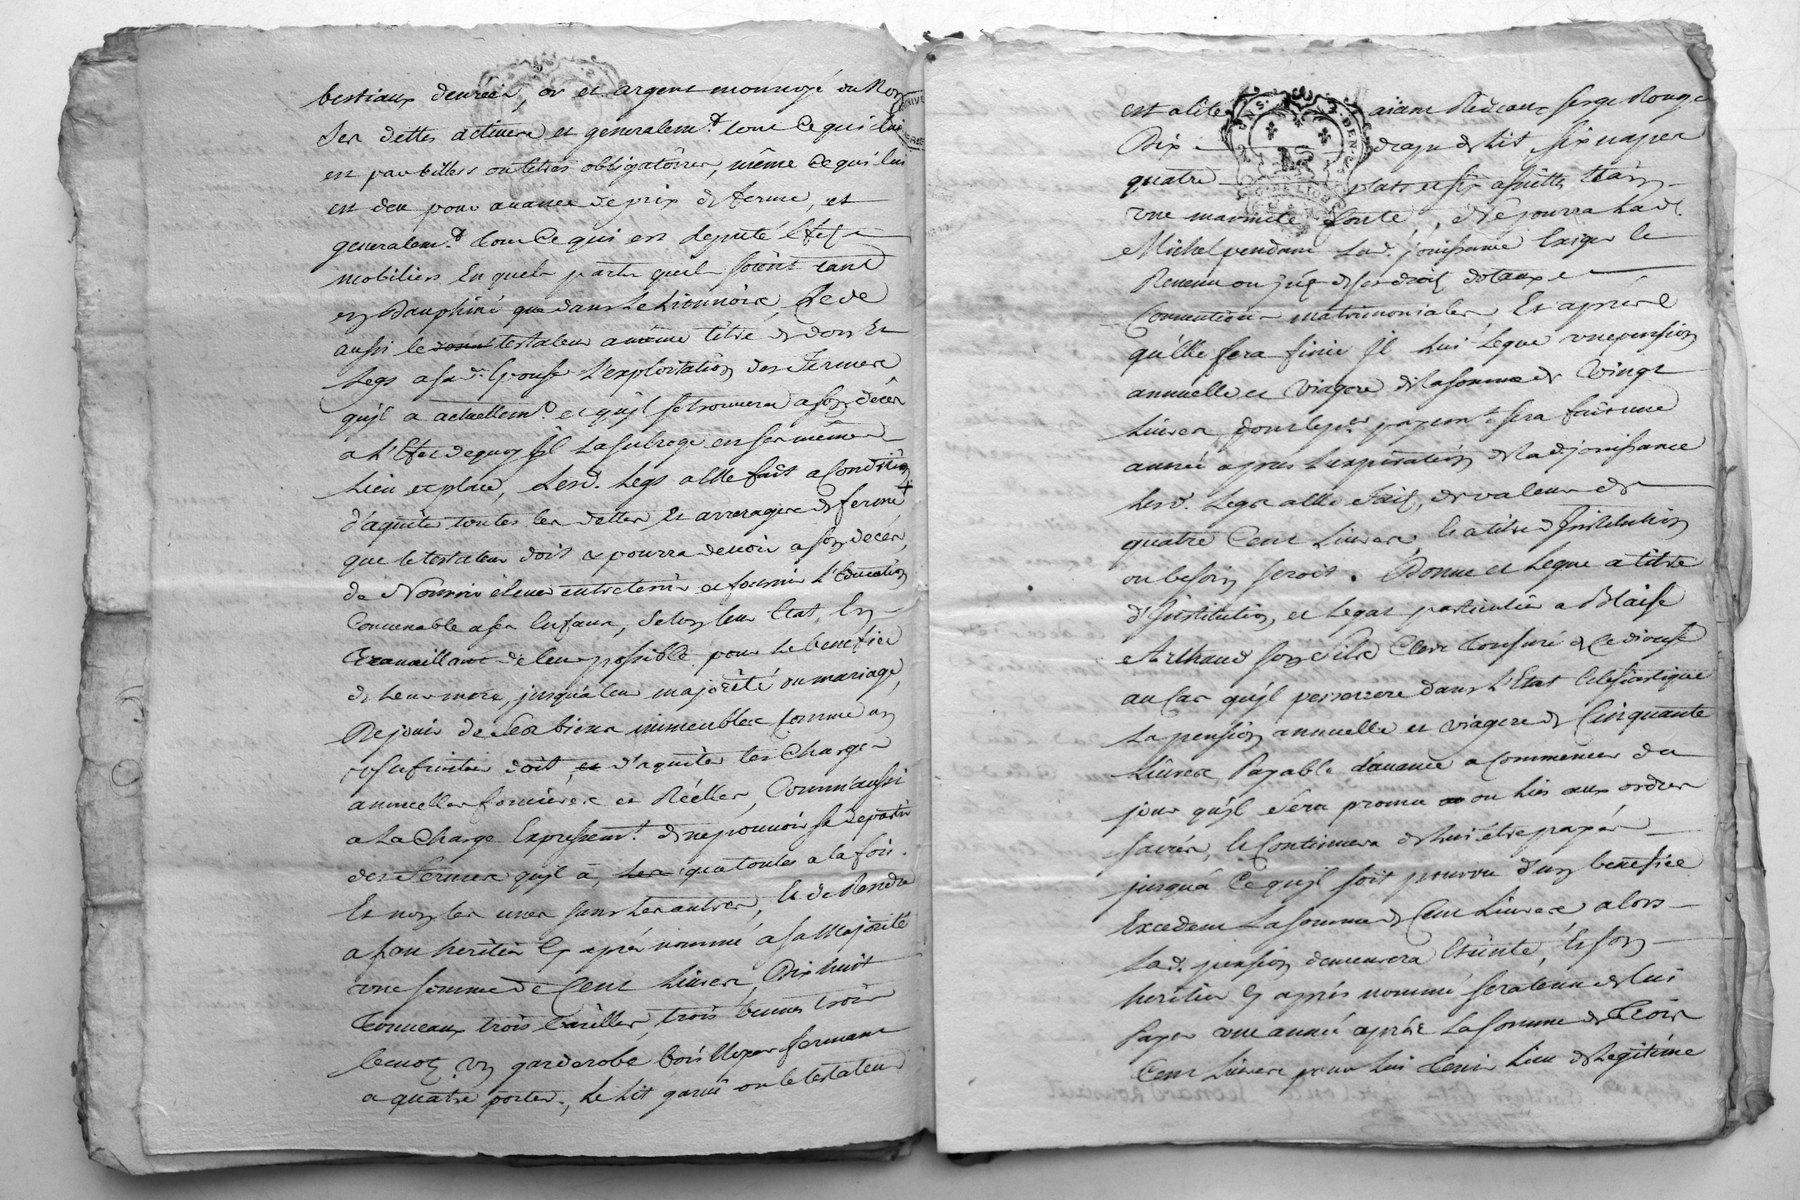 bestiaux denrées, or et argent monnoyé ou non
Ses dettes actives et generalem.t tout ce qui lui
est par billets ou titres obligatoires, même ce qui lui
est deu pour avance de prix de ferme, et
generalem.t tout ce qui est reputé Effet
mobiliers En quels parts quils soient tant
en Dauphiné que dans le Lionnois, Legue
aussi le testateur a même titre de don Et
Legs a sad.e Epouse L'exploitation des Fermes
qu'il a actuellem.t et qu'il se trouvera a son décés
a L'Effet dequoy il La subroge en ses mêmes
Lieu et place, Lesd. Legs a Elle fait a condition
d'aquiter toutes les dettes Et arrerages de ferme
que le testateur doit et pourra devoir a son décés,
de Nourrir elever entretenir et fournir L'Education
Convenable a ses Enfans, selon leur Etat, En
travaillant de leur possible pour le benefice
de Leur mere, jusqu'a leur majorité ou mariage,
De jouir de ses biens immeubles comme un
usufruitier doit, d'aquiter les charges
annuelles foncieres et Réelles, Comm'aussi
a La charge Expressem.t de ne pouvoir se departir
des fermes qu'il a, que toutes a la fois
Et non les unes sans les autres, Et de Rendre
a son heritier cy après nommé a sa Majorité
une somme de Cent Livres, Dix huit
tonneaux, trois barilles, trois bennes trois
benot, un garderobe bois Noyer fermant
a quatre portes, Le Lit garni ou le testateur
est alité aiant Rideaux serge Rouge
Dix draps de lit six napes
quatre plats et six assiettes Etain
une marmite fonte, Ne pourra Lad.
Michel pendant Lad. jouissance Exiger le
Revenu ou de ses droits dotaux
Convention matrimoniales, Et après
qu'elle sera finie Il Lui Legue une pension
annuelle et viagere de la somme de Vingt
Livres, dont le p.er payem.t sera fait une
année après L'expiration de lad. jouissance
Lesd. Legs a Elle faits, de valeur de
quatre Cent Livres, Et a titre d'Institution
ou besoin seroit. Donne et Legue a titre
d'Institution, et Legat particulier a Blaise
Arthaud son fils Clerc Tonsuré de ce diocese
au cas qu'il persevere dans L'Etat Eclesiastique
La pension annuelle et viagere de Cinquante
Livres Payable d'avance a commencer du
jour qu'il sera promu ou Liés aux ordres
sacrés, Et Continuera de lui être payée
jusqu'a ce qu'il soit pourvu d'un benefice
Excedent La somme de Cent Livres alors
Lad. pension demeurera Eteinte, Et son
heritier cy après nommé sera tenu de Lui
Payer une année après La somme de trois
Cent Livres pour Lui tenir Lieu de Legitime